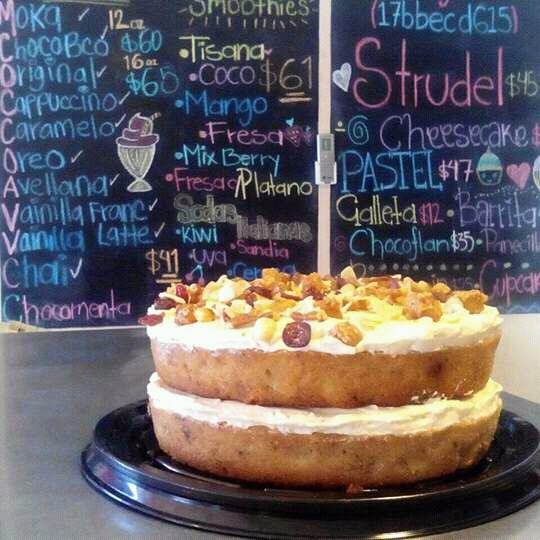 Moka ✓ 12 oz
ChocoBco ✓ $60
Original ✓ 16 oz
Cappuccino ✓ $65
Caramelo ✓
Oreo ✓
Avellana ✓
Vainilla Franc ✓
Vainilla Latte ✓
Chai ✓ $41
Chocomenta
Smoothies
• Tisana
• Coco $61
• Mango
• Fresa
• Mix Berry
• Fresa
Platano
Sodas Italianas
• Kiwi
• Sandia
• uva
(17bbecd615)
Strudel $45
Cheesecake $
PASTEL $47
Galleta $12 • Barrita
• Chocoflan $35 •
Cupcak